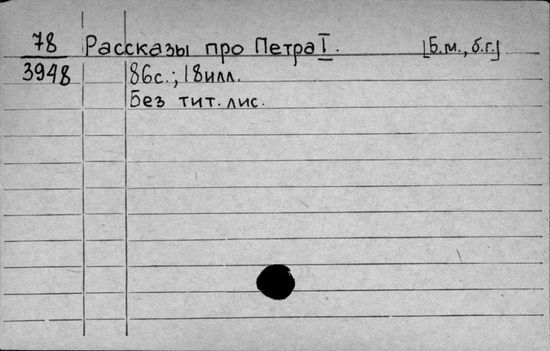 78 Рассказы про Петра I. [Б.м., б.г.]
3948 86с.; 18илл.
Без тит. лис.